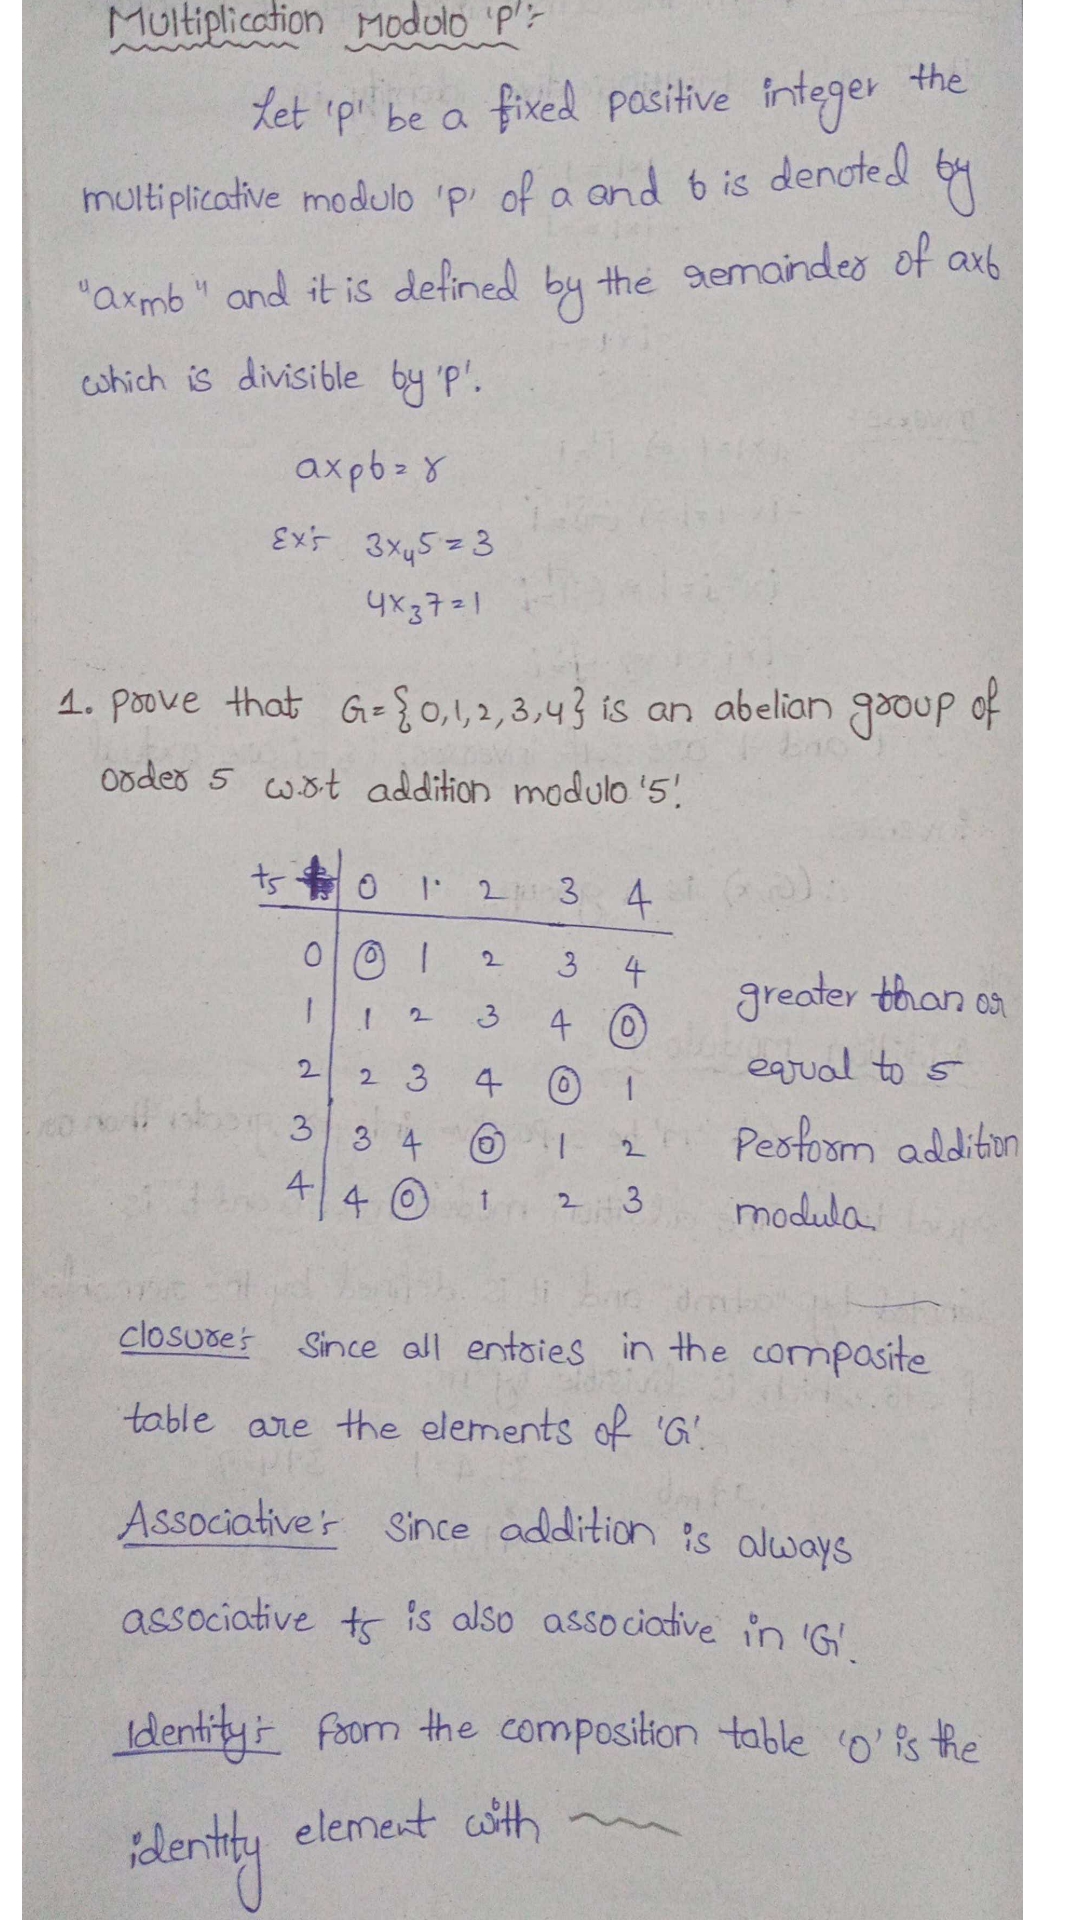 Multiplication Modulo 'P':-
Let 'P' be a fixed positive integer the
multiplicative modulo 'P' of a and b is denoted by
"axmb" and it is defined by the remainder of axb
which is divisible by 'P'.
axpb = r
Ex:- 3x₄5 = 3
4x₃7 = 1
1. Prove that G = {0,1,2,3,4} is an abelian group of
order 5 w.r.t addition modulo '5'.
+₅ 0 1 2 3 4
0 0 1 2 3 4
1 1 2 3 4 0
2 2 3 4 0 1
3 3 4 0 1 2
4 4 0 1 2 3
greater than or
equal to 5
Perform addition
modula.
closure:- Since all entries in the composite
table are the elements of 'G'.
Associative:- Since addition is always
associative +₅ is also associative in 'G'.
Identity:- from the composition table 'O' is the
identity element with